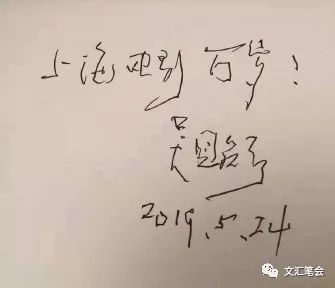 上海电影百岁！
吴思远
2019.5.24
文汇笔会